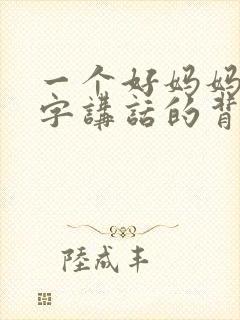 一个好妈妈
字講話的背
陸成丰